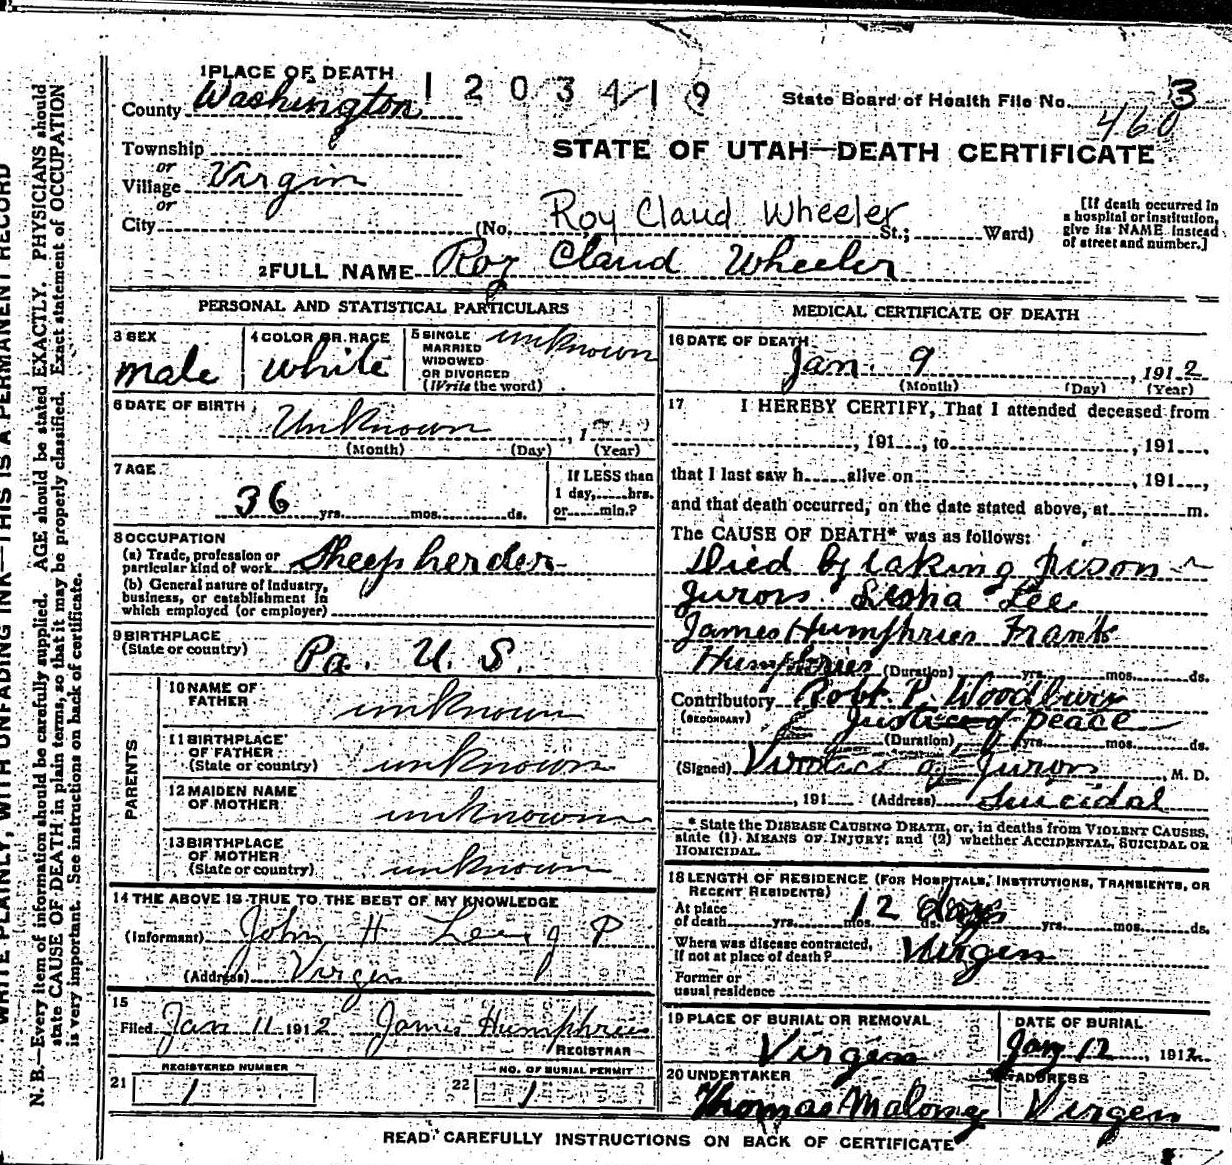 1 PLACE OF DEATH
1203419
State Board of Health File No. 3
County Washington
460
Township
STATE OF UTAH—DEATH CERTIFICATE
or
Village Virgin
or
City (No. Roy Claud Wheeler St.; Ward)
[If death occurred in
a hospital or institution,
give its NAME instead
of street and number.]
2 FULL NAME Roy Claud Wheeler
PERSONAL AND STATISTICAL PARTICULARS
3 SEX
male
4 COLOR OR RACE
white
5 SINGLE
MARRIED
WIDOWED
OR DIVORCED
(Write the word)
unknown
6 DATE OF BIRTH
Unknown , 1
(Month) (Day) (Year)
7 AGE
36 yrs. mos. ds.
If LESS than
1 day, hrs.
or min.?
8 OCCUPATION
(a) Trade, profession or
particular kind of work Sheepherder
(b) General nature of industry,
business, or establishment in
which employed (or employer)
9 BIRTHPLACE
(State or country)
Pa. U. S.
PARENTS
10 NAME OF
FATHER
unknown
11 BIRTHPLACE
OF FATHER
(State or country)
unknown
12 MAIDEN NAME
OF MOTHER
unknown
13 BIRTHPLACE
OF MOTHER
(State or country)
unknown
14 THE ABOVE IS TRUE TO THE BEST OF MY KNOWLEDGE
(Informant) John H
(Address) Virgen
15
Filed Jan 11 1912 James Humphries
REGISTRAR
21
REGISTERED NUMBER
1
22
NO. OF BURIAL PERMIT
1
MEDICAL CERTIFICATE OF DEATH
16 DATE OF DEATH
Jan. 9 , 1912
(Month) (Day) (Year)
17 I HEREBY CERTIFY, That I attended deceased from
, 191 , to , 191 ,
that I last saw h alive on , 191 ,
and that death occurred, on the date stated above, at m.
The CAUSE OF DEATH* was as follows:
Died by taking
Jurors Lee
James Humphries Frank
Humphries (Duration) yrs. mos. ds.
Contributory Robt. P. Woodbury
(SECONDARY) Justice of peace
(Duration) yrs. mos. ds.
(Signed) of Jurors , M. D.
, 191 (Address) Suicidal
* State the DISEASE CAUSING DEATH, or, in deaths from VIOLENT CAUSES,
state (1) MEANS OF INJURY; and (2) whether ACCIDENTAL, SUICIDAL OR
HOMICIDAL.
18 LENGTH OF RESIDENCE (FOR HOSPITALS, INSTITUTIONS, TRANSIENTS, OR
RECENT RESIDENTS)
At place
of death yrs. mos. 12 days ds. yrs. mos. ds.
Where was disease contracted,
if not at place of death? Virgen
Former or
usual residence
19 PLACE OF BURIAL OR REMOVAL
Virgen
DATE OF BURIAL
Jany 12 , 1912
20 UNDERTAKER
Thomas Maloney
ADDRESS
Virgen
READ CAREFULLY INSTRUCTIONS ON BACK OF CERTIFICATE
WRITE PLAINLY, WITH UNFADING INK—THIS IS A PERMANENT RECORD
N. B.—Every item of information should be carefully supplied. AGE should be stated EXACTLY. PHYSICIANS should
state CAUSE OF DEATH in plain terms, so that it may be properly classified. Exact statement of OCCUPATION
is very important. See instructions on back of certificate.